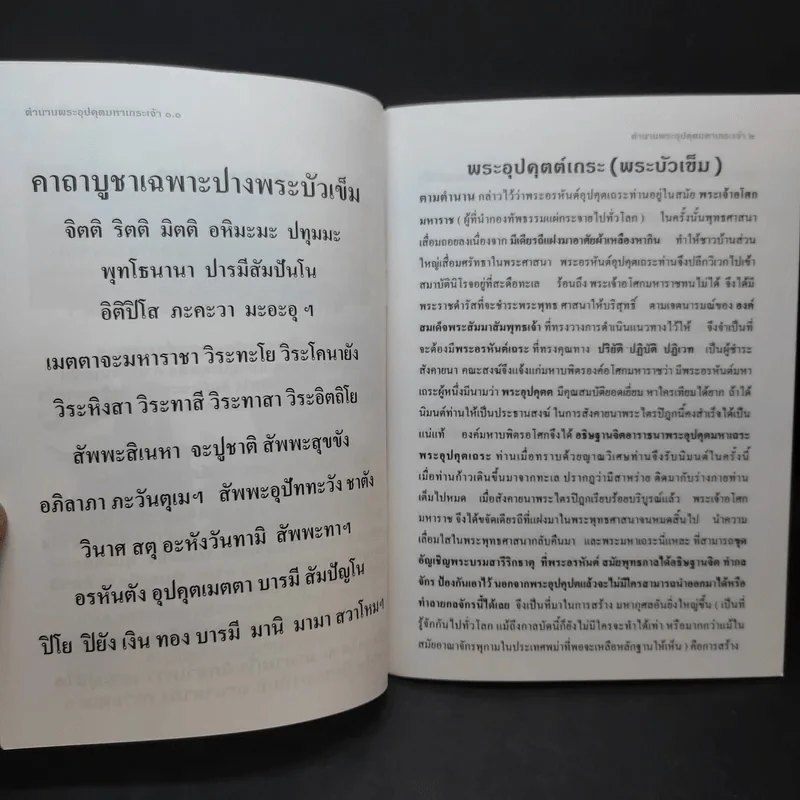 ตำนานพระอุปคุตมหาเถระเจ้า ๑.๑
คาถาบูชาเฉพาะปางพระบัวเข็ม
จิตติ ริตติ มิตติ อหิมะมะ ปทุมมะ
พุทโธนานา ปารมีสัมปันโน
อิติปิโส ภะคะวา มะอะอุ ฯ
เมตตาจะมหาราชา วิระทะโย วิระโคนายัง
วิระหิงสา วิระทาสี วิระทาสา วิระอิตถิโย
สัพพะสิเนหา จะปูชาติ สัพพะสุขขัง
อภิลาภา ภะวันตุเมฯ สัพพะอุปัททะวัง ชาตัง
วินาศ สตุ อะหังวันทามิ สัพพะทาฯ
อรหันตัง อุปคุตเมตตา บารมี สัมปัญโน
ปิโย ปิยัง เงิน ทอง บารมี มานิ มามา สวาโหมฯ
ตำนานพระอุปคุตมหาเถระเจ้า ๒
พระอุปคุตต์เถระ (พระบัวเข็ม)
ตามตำนาน กล่าวไว้ว่าพระอรหันต์อุปคุตเถระท่านอยู่ในสมัย พระเจ้าอโศก
มหาราช ( ผู้ที่นำกองทัพธรรมแผ่กระจายไปทั่วโลก ) ในครั้งนั้นพุทธศาสนา
เสื่อมถอยลงเนื่องจาก มีเดียรถีแฝงมาอาศัยผ้าเหลืองหากิน ทำให้ชาวบ้านส่วน
ใหญ่เสื่อมศรัทธาในพระศาสนา พระอรหันต์อุปคุตเถระท่านจึงปลีกวิเวกไปเข้า
สมาบัตินิโรจอยู่ที่สะดือทะเล ร้อนถึง พระเจ้าอโศกมหาราชทนไม่ได้ จึงได้มี
พระราชดำรัสที่จะชำระพระพุทธ ศาสนาให้บริสุทธิ์ ตามเจตนารมณ์ของ องค์
สมเด็จพระสัมมาสัมพุทธเจ้า ที่ทรงวางการดำเนินแนวทางไว้ให้ จึงจำเป็นที่
จะต้องมีพระอรหันต์เถระ ที่ทรงคุณทาง ปริยัติ ปฏิบัติ ปฏิเวท เป็นผู้ชำระ
สังคายนา คณะสงฆ์จึงแจ้งแก่มหาบพิตรองค์อโศกมหาราชว่า มีพระอรหันต์มหา
เถระผู้หนึ่งมีนามว่า พระอุปคุตต มีคุณสมบัติยอดเยี่ยม หาใครเทียมได้ยาก ถ้าได้
นิมนต์ท่านให้เป็นประธานสงฆ์ ในการสังคายนาพระไตรปิฎกนี้คงสำเร็จได้เป็น
แน่แท้ องค์มหาบพิตรอโศกจึงได้ อธิษฐานจิตอาราธนาพระอุปคุตมหาเถระ
พระอุปคุตเถระ ท่านเมื่อทราบด้วยญาณวิเศษท่านจึงรับนิมนต์ในครั้งนี้
เมื่อท่านก้าวเดินขึ้นมาจากทะเล ปรากฏว่ามีสาหร่าย ติดมากับร่างกายท่าน
เต็มไปหมด เมื่อสังคายนาพระไตรปิฎกเรียบร้อยบริบูรณ์แล้ว พระเจ้าอโศก
มหาราช จึงได้ขจัดเดียรถีที่แฝงมาในพระพุทธศาสนาจนหมดสิ้นไป นำความ
เลื่อมใสในพระพุทธศาสนากลับคืนมา และพระมหาเถระนี่แหละ ที่สามารถขุด
อัญเชิญพระบรมสารีริกธาตุ ที่พระอรหันต์ สมัยพุทธกาลได้อธิษฐานจิต ทำกล
จักร ป้องกันเอาไว้ นอกจากพระอุปคุปตแล้วจะไม่มีใครสามารถนำออกมาได้หรือ
ทำลายกลจักรนี้ได้เลย จึงเป็นที่มาในการสร้าง มหากุศลอันยิ่งใหญ่ขึ้น ( เป็นที่
รู้จักกันไปทั่วโลก แม้ถึงกาลบัดนี้ก็ยังไม่มีใครจะทำได้เท่า หรือมากกว่าแม้ใน
สมัยอาณาจักรพุกามในประเทศพม่าที่พอจะเหลือหลักฐานให้เห็น ) คือการสร้าง